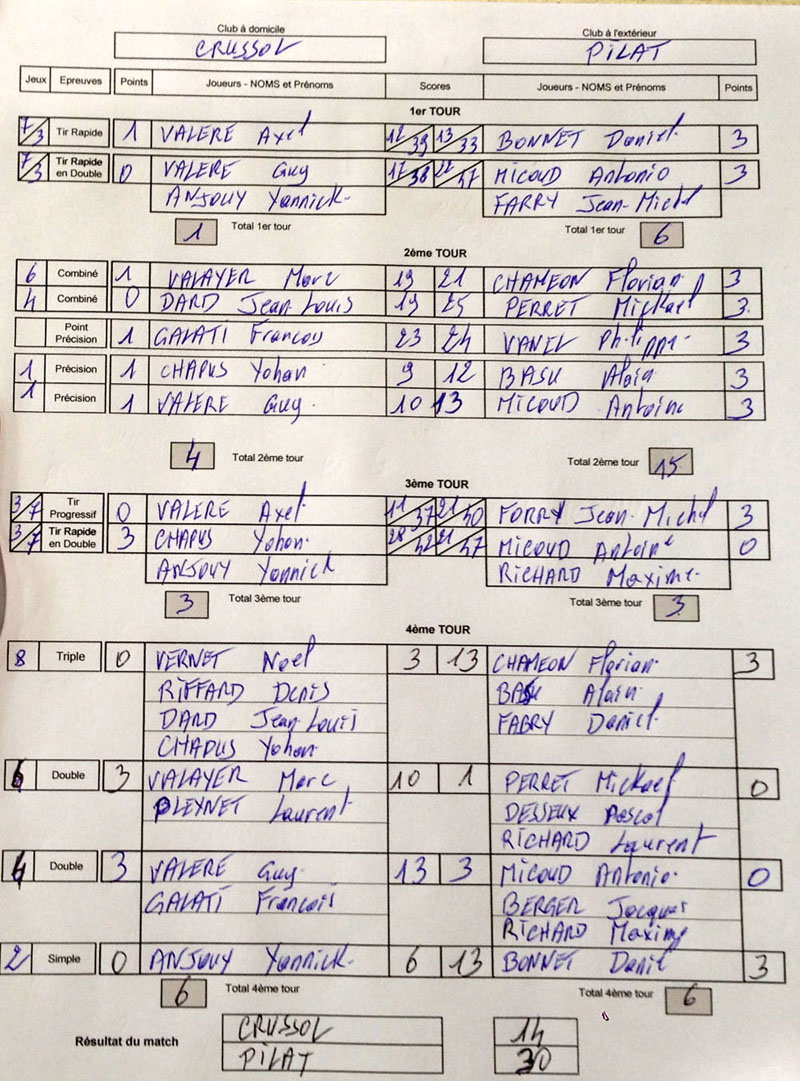 Club à domicile Club à l'extérieur
CRUSSOL PILAT
Jeux Epreuves Points Joueurs - NOMS et Prénoms Scores Joueurs - NOMS et Prénoms Points
1er TOUR
7/3 Tir Rapide 1 VALERE Axel 12/39 13/33 BONNET Daniel 3
7/3 Tir Rapide en Double 0 VALERE Guy 17/38 /37 MICOUD Antonio 3
ANJOUY Yannick FARRY Jean-Michel
1 Total 1er tour Total 1er tour 6
2ème TOUR
6 Combiné 1 VALAYER Marc 19 21 CHAMEON Florian 3
4 Combiné 0 DARD Jean Louis 19 25 PERRET Mickael 3
Point Précision 1 GALATI François 23 24 VANEL Philippe 3
1 Précision 1 CHAPUS Yohan 9 12 BASU Alain 3
1 Précision 1 VALERE Guy 10 13 MICOUD Antoine 3
4 Total 2ème tour Total 2ème tour 15
3ème TOUR
3/7 Tir Progressif 0 VALERE Axel 11/37 21/40 FORRY Jean-Michel 3
3/7 Tir Rapide en Double 3 CHAPUS Yohan 28/42 21/47 MICOUD Antoine 0
ANJOUY Yannick RICHARD Maxime
3 Total 3ème tour Total 3ème tour 3
4ème TOUR
8 Triple 0 VERNET Noel 3 13 CHAMEON Florian 3
RIFFARD Denis BASU Alain
DARD Jean Louis FABRY Daniel
CHAPUS Yohan
6 Double 3 VALAYER Marc 10 1 PERRET Mickael 0
PLEYNET Laurent DESSEUX Pascal
RICHARD Laurent
4 Double 3 VALERE Guy 13 3 MICOUD Antonio 0
GALATI François BERGER Jacques
RICHARD Maxime
2 Simple 0 ANJOUY Yannick 6 13 BONNET Daniel 3
6 Total 4ème tour Total 4ème tour 6
Résultat du match CRUSSOL 14
PILAT 30